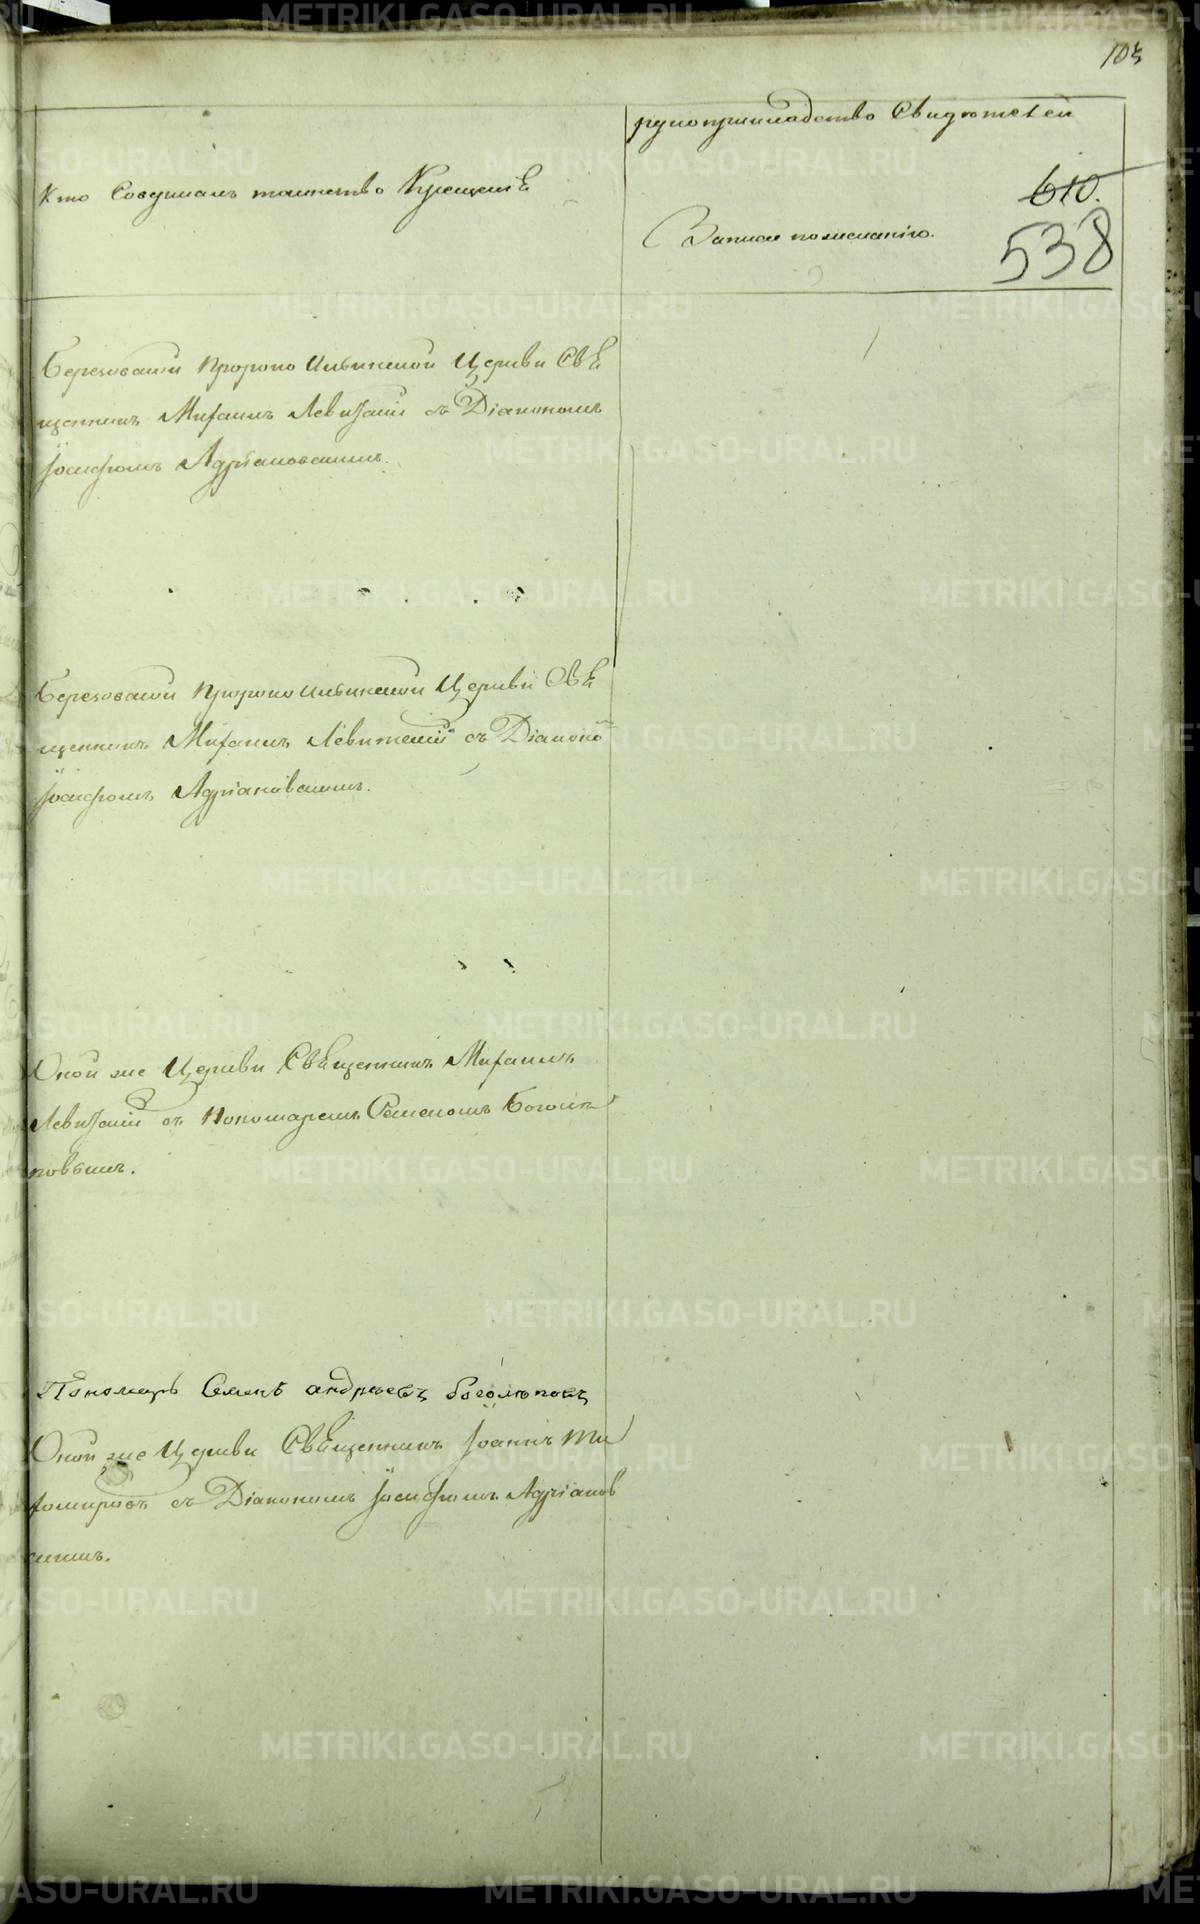 103
Кто Совершалъ таинство Крещенiя
рукоприкладство Свидѣтелей
Записи пожеланiю.
610.
538
Березовской Пророко Ильинской Церкви Свя
щенникъ Михаилъ Левитскiй съ Дiакономъ
Iосифомъ Адрiановскимъ.
Березовской Пророко Ильинской Церкви Свя
щенникъ Михаилъ Левитскiй съ Дiаконо
Iосифомъ Адрiановскимъ.
Оной же Церкви Священникъ Михаилъ
Левитскiй съ Пономаремъ Семеномъ Боголѣ
повымъ.
Пономарь Семенъ андрѣевъ боголѣповъ
Оной же Церкви Священникъ Iоаннъ Ти
хомировъ съ Дiакономъ Iосифомъ Адрiанов
скимъ.
METRIKI.GASO-URAL.RU